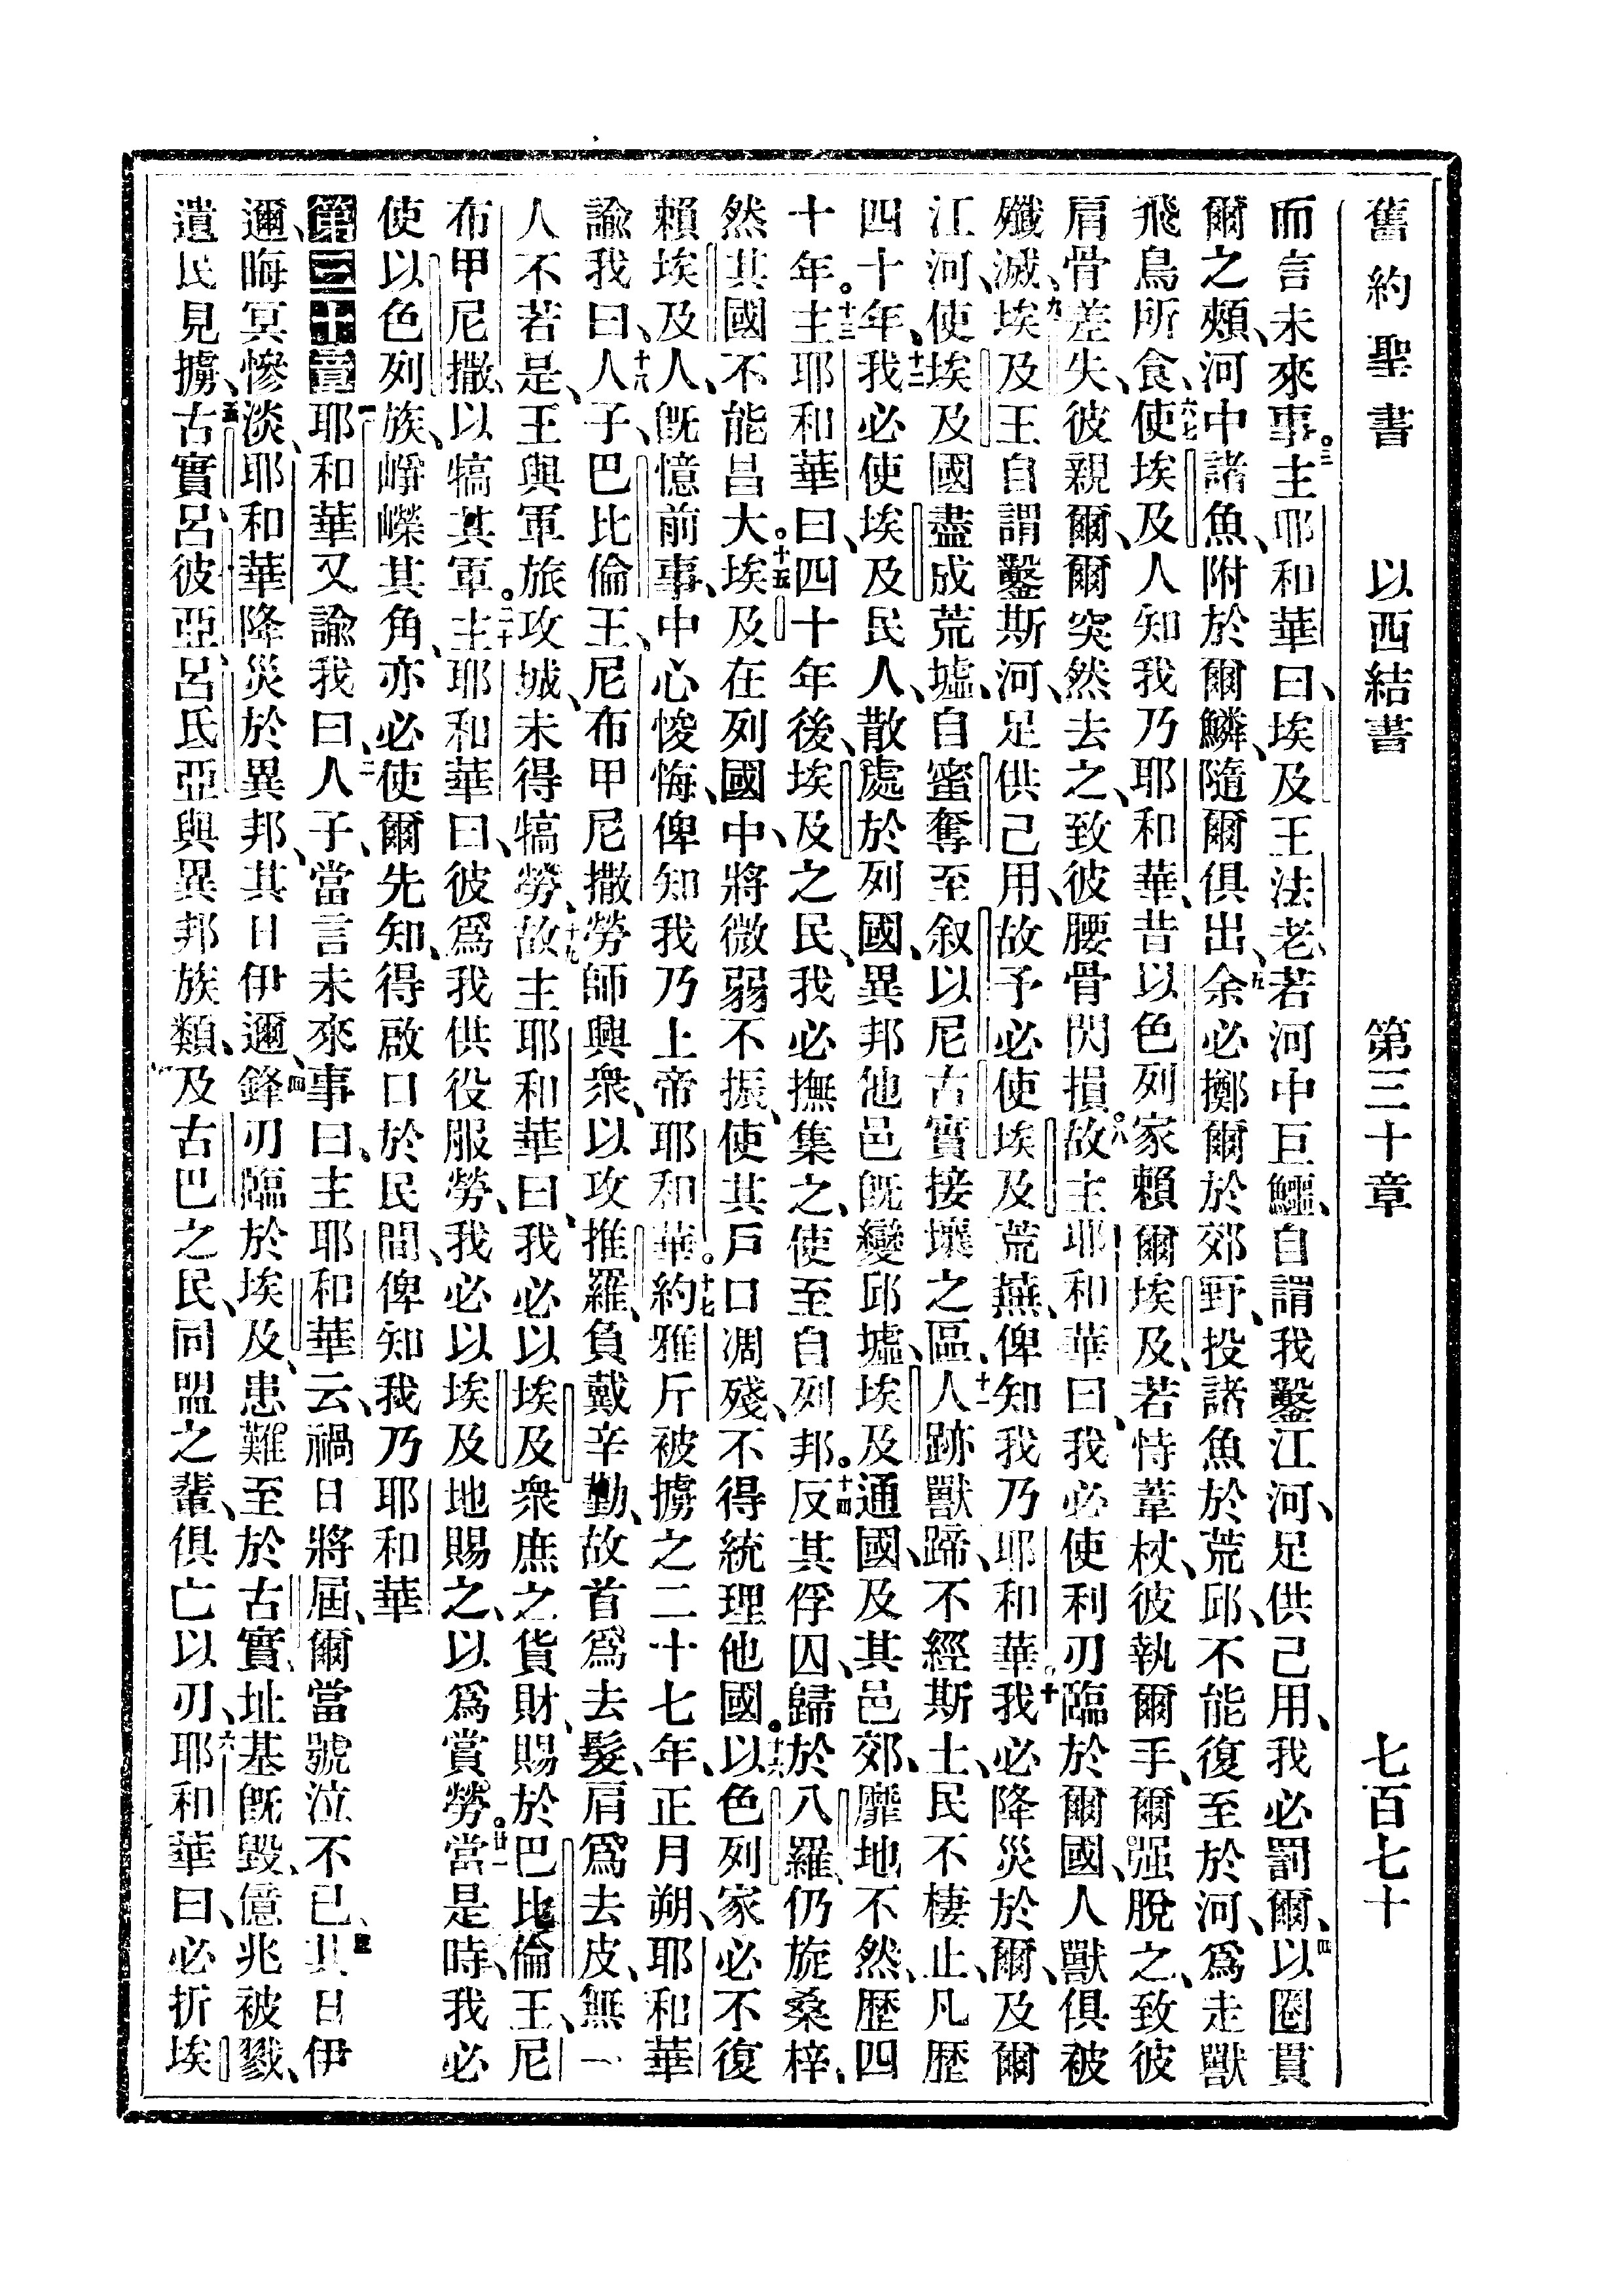 舊約聖書 以西結書 第三十章 七百七十
而言未來事。三主耶和華曰、埃及王法老、若河中巨鱷、自謂我鑿江河、足供己用、我必罰爾、四以圈貫
爾之頰、河中諸魚、附於爾鱗、隨爾俱出、五余必擲爾於郊野、投諸魚於荒邱、不能復至於河、爲走獸
飛鳥所食、六七使埃及人知我乃耶和華、昔以色列家賴爾埃及、若恃葦杖、彼執爾手、爾强脫之、致彼
肩骨差失、彼親爾、爾突然去之、致彼腰骨閃損。八故主耶和華曰、我必使利刃臨於爾國、人獸俱被
殲滅、九埃及王自謂鑿斯河、足供己用、故予必使埃及荒蕪、俾知我乃耶和華。十我必降災於爾、及爾
江河、使埃及國盡成荒墟、自蜜奪至叙以尼古實接壤之區、十一人跡獸蹄、不經斯土、民不棲止、凡歷
四十年、十二我必使埃及民人、散處於列國、異邦他邑旣變邱墟、埃及通國、及其邑郊、靡地不然、歷四
十年。十三主耶和華曰、四十年後、埃及之民、我必撫集之、使至自列邦。十四反其俘囚、歸於八羅、仍旋桑梓、
然其國不能昌大。十五埃及在列國中、將微弱不振、使其戶口凋殘、不得統理他國。十六以色列家必不復
賴埃及人、旣憶前事、中心悛悔、俾知我乃上帝耶和華。十七約雅斤被擄之二十七年、正月朔、耶和華
諭我曰、十八人子、巴比倫王、尼布甲尼撒勞師興衆、以攻推羅、負戴辛勤、故首爲去髮、肩爲去皮、無一
人不若是、王與軍旅攻城、未得犒勞、十九故主耶和華曰、我必以埃及衆庶之貨財、賜於巴比倫王、尼
布甲尼撒、以犒其軍。二十主耶和華曰、彼爲我供役服勞、我必以埃及地賜之、以爲賞勞。廿一當是時、我必
使以色列族、崢嶸其角、亦必使爾先知、得啟口於民間、俾知我乃耶和華
第三十章一耶和華又諭我曰、二人子、當言未來事曰、主耶和華云、禍日將屆、爾當號泣不已、三其日伊
邇、晦冥慘淡、耶和華降災於異邦、其日伊邇、四鋒刃臨於埃及、患難至於古實、址基旣毀、億兆被戮、
遺民見擄、五古實呂彼亞呂氏亞與異邦族類、及古巴之民、同盟之輩、俱亡以刃、六耶和華曰、必折埃